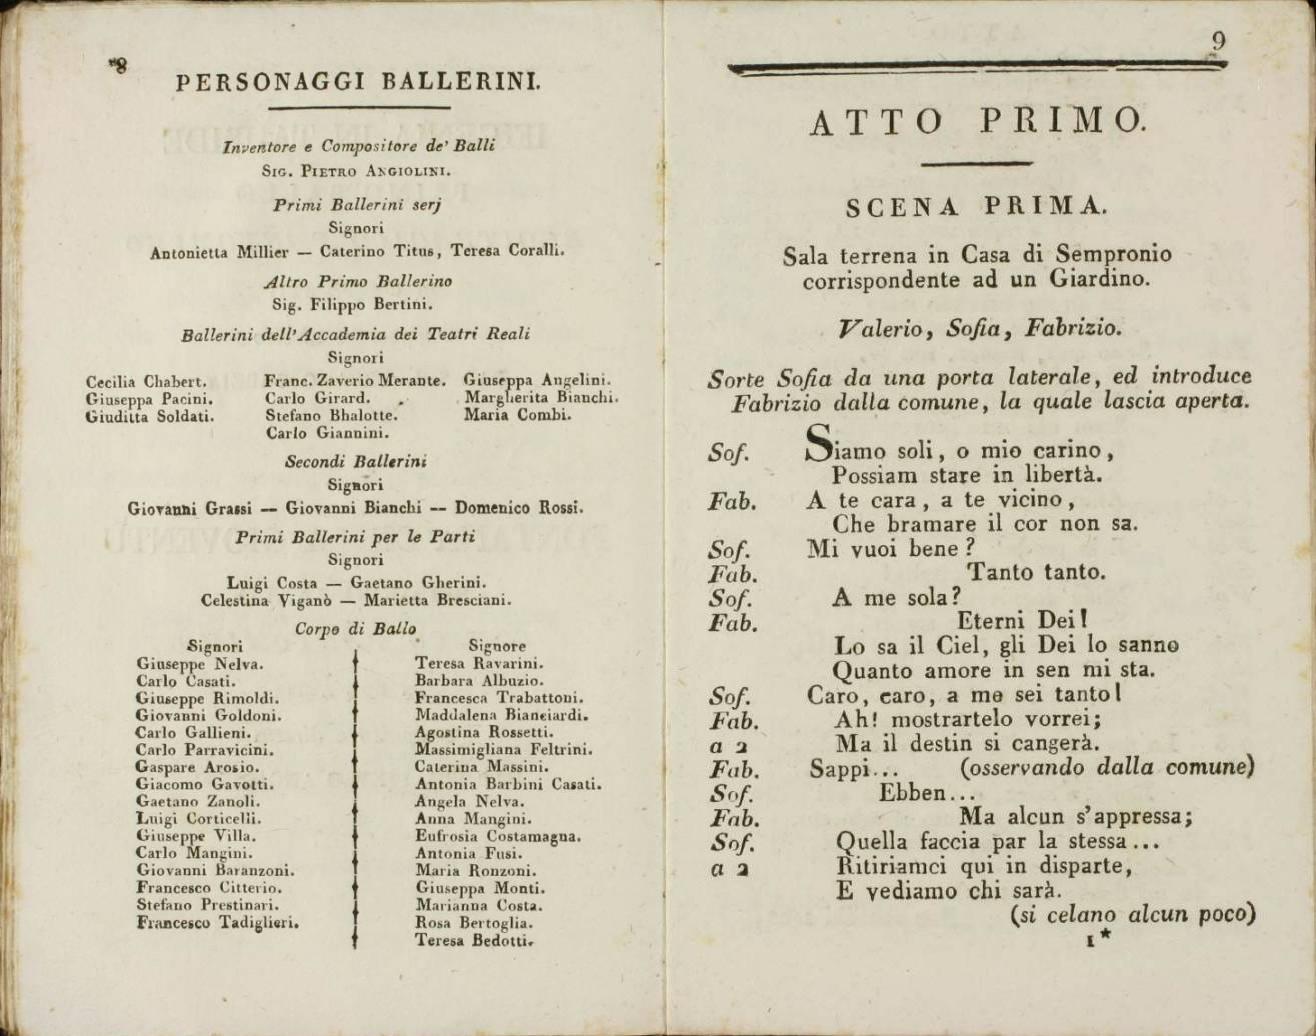 8
PERSONAGGI BALLERINI.
Inventore e Compositore de' Balli
SIG. PIETRO ANGIOLINI.
Primi Ballerini serj
Signori
Antonietta Millier — Caterino Titus, Teresa Coralli.
Altro Primo Ballerino
Sig. Filippo Bertini.
Ballerini dell'Accademia dei Teatri Reali
Signori
Cecilia Chabert. Franc. Zaverio Merante. Giuseppa Angelini.
Giuseppa Pacini. Carlo Girard. Margherita Bianchi.
Giuditta Soldati. Stefano Bhalotte. Maria Combi.
Carlo Giannini.
Secondi Ballerini
Signori
Giovanni Grassi — Giovanni Bianchi — Domenico Rossi.
Primi Ballerini per le Parti
Signori
Luigi Costa — Gaetano Gherini.
Celestina Viganò — Marietta Bresciani.
Corpo di Ballo
Signori
Giuseppe Nelva.
Carlo Casati.
Giuseppe Rimoldi.
Giovanni Goldoni.
Carlo Gallieni.
Carlo Parravicini.
Gaspare Arosio.
Giacomo Gavotti.
Gaetano Zanoli.
Luigi Corticelli.
Giuseppe Villa.
Carlo Mangini.
Giovanni Baranzoni.
Francesco Citterio.
Stefano Prestinari.
Francesco Tadiglieri.
Signore
Teresa Ravarini.
Barbara Albuzio.
Francesca Trabattoni.
Maddalena Bianciardi.
Agostina Rossetti.
Massimigliana Feltrini.
Caterina Massini.
Antonia Barbini Casati.
Angela Nelva.
Anna Mangini.
Eufrosia Costamagna.
Antonia Fusi.
Maria Ronzoni.
Giuseppa Monti.
Marianna Costa.
Rosa Bertoglia.
Teresa Bedotti.
9
ATTO PRIMO.
SCENA PRIMA.
Sala terrena in Casa di Sempronio
corrispondente ad un Giardino.
Valerio, Sofia, Fabrizio.
Sorte Sofia da una porta laterale, ed introduce
Fabrizio dalla comune, la quale lascia aperta.
Sof. Siamo soli, o mio carino,
Possiam stare in libertà.
Fab. A te cara, a te vicino,
Che bramare il cor non sa.
Sof. Mi vuoi bene?
Fab. Tanto tanto.
Sof. A me sola?
Fab. Eterni Dei!
Lo sa il Ciel, gli Dei lo sanno
Quanto amore in sen mi sta.
Sof. Caro, caro, a me sei tanto!
Fab. Ah! mostrartelo vorrei;
a 2 Ma il destin si cangerà.
Fab. Sappi... (osservando dalla comune)
Sof. Ebben...
Fab. Ma alcun s'appressa;
Sof. Quella faccia par la stessa...
a 2 Ritiriamci qui in disparte,
E vediamo chi sarà.
(si celano alcun poco)
1*